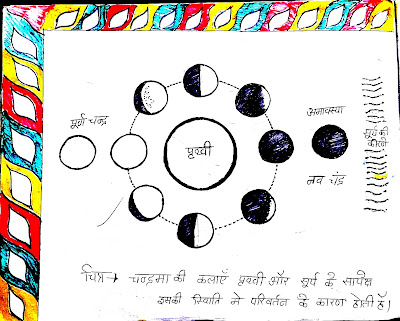 पूर्ण चन्द्र
पृथ्वी
अमावस्या
सूर्य की
किरणें
नव चंद्र
चित्र→ चन्द्रमा की कलाएँ पृथ्वी और सूर्य के सापेक्ष
इसकी स्थिति में परिवर्तन के कारण होती हैं।